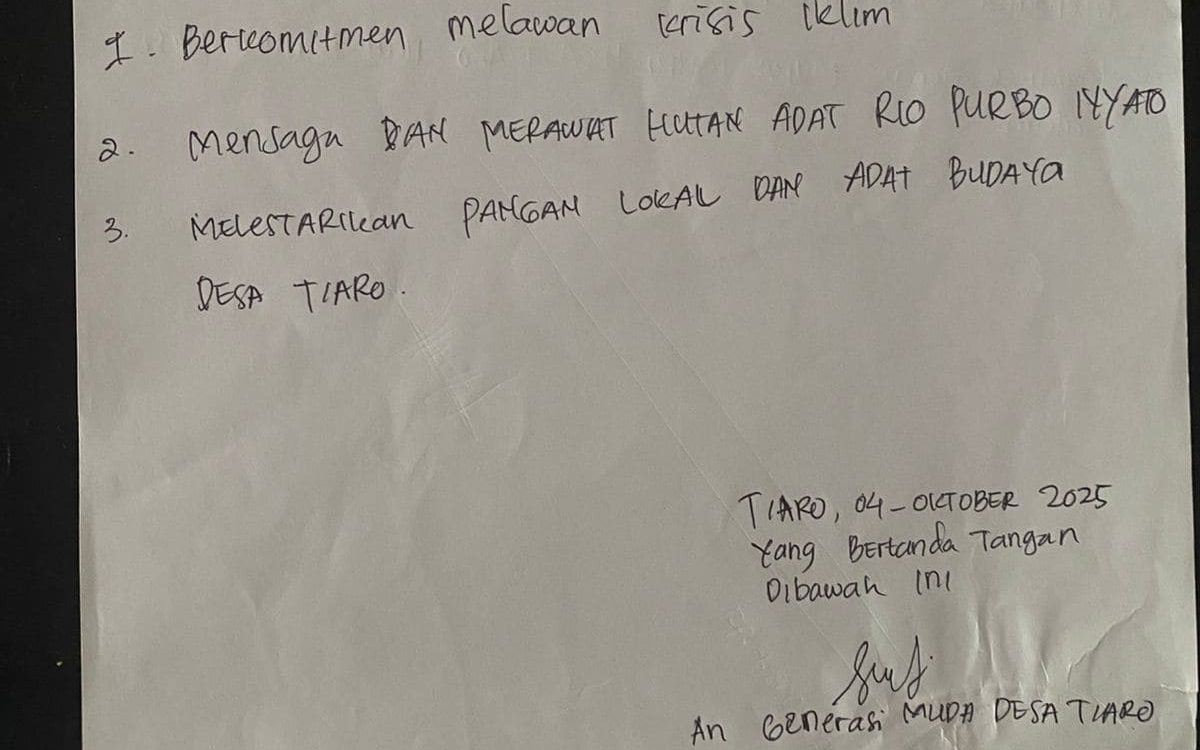 1. Berkomitmen melawan krisis iklim
2. Menjaga DAN MERAWAT HUTAN ADAT RIO PURBO NYATO
3. MELESTARIkan PANGAN LOKAL DAN ADAT BUDAYA
DESA TIARO.
TIARO, 04-OKTOBER 2025
Yang Bertanda Tangan
Dibawah INI
An Generasi MUDA DESA TIARO